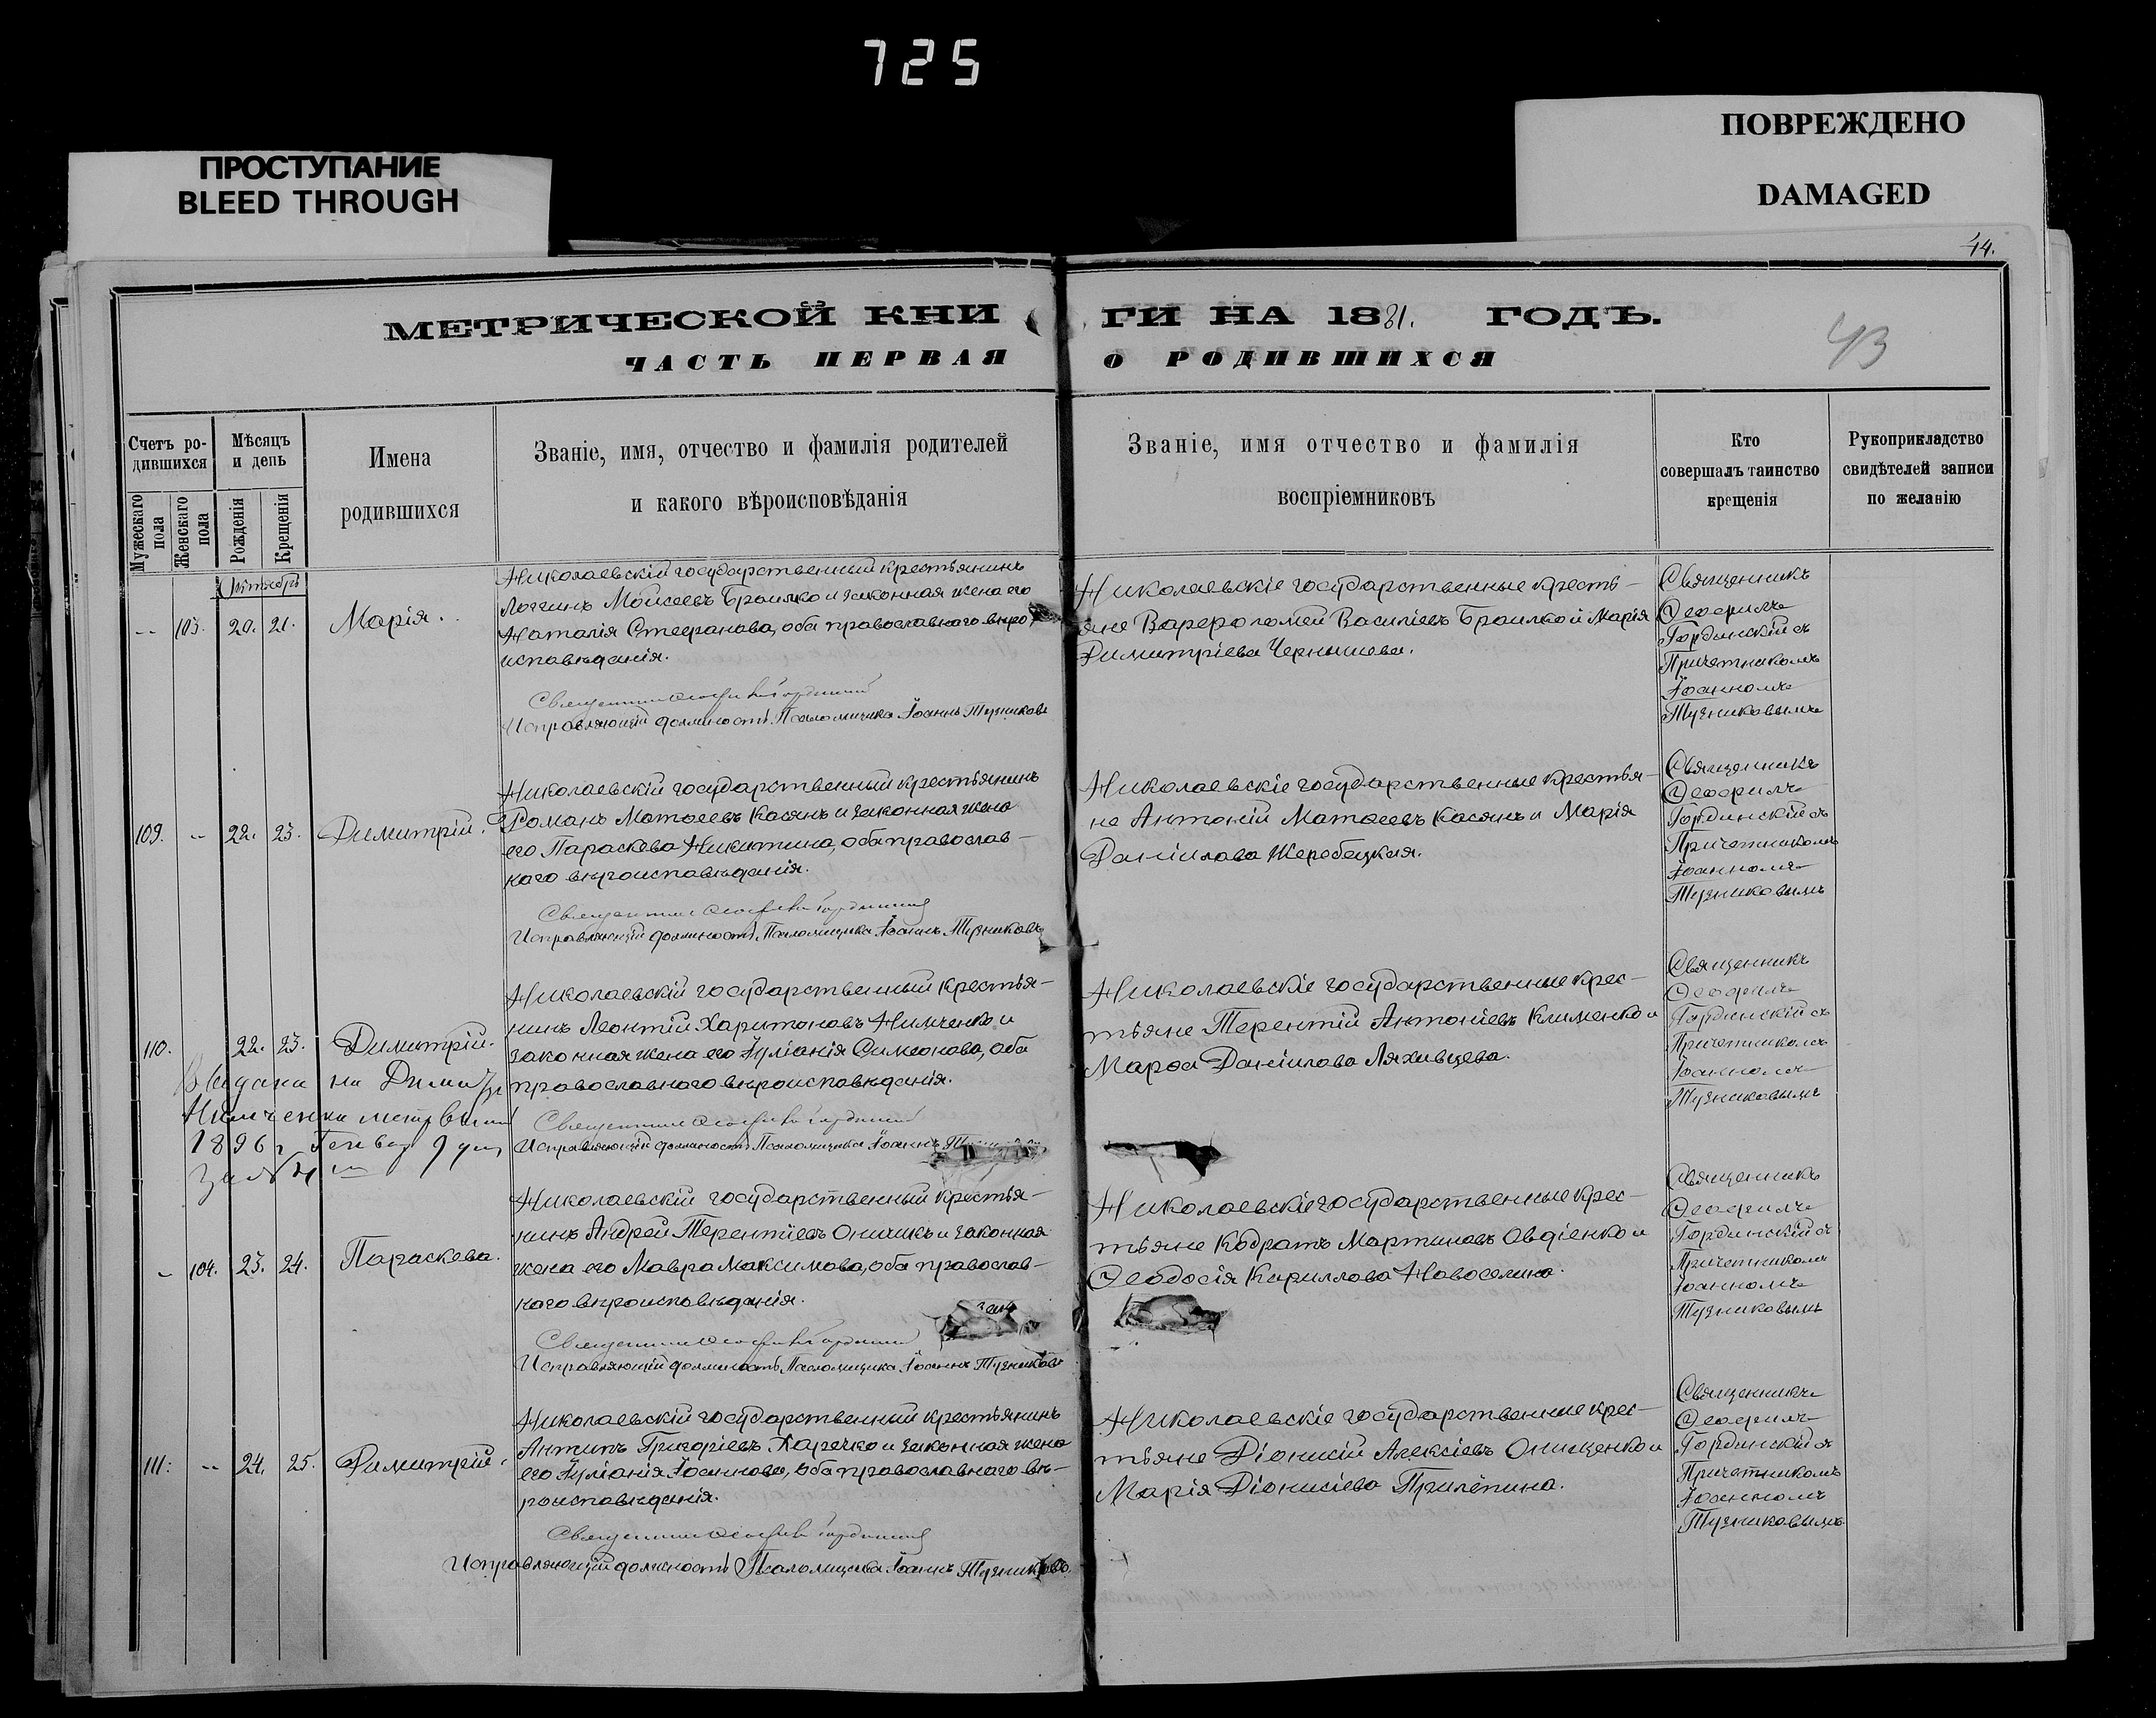 725
ПРОСТУПАНИЕ
BLEED THROUGH
ПОВРЕЖДЕНО
DAMAGED
44.
МЕТРИЧЕСКОЙ КНИ ГИ НА 1881. ГОДЪ.
ЧАСТЬ ПЕРВАЯ О РОДИВШИХСЯ
43
Счетъ ро-
дившихся
Мужескаго пола
Женскаго пола
Мѣсяцъ
и день
Рожденія
Крещенія
Имена
родившихся
Званіе, имя, отчество и фамилія родителей
и какого вѣроисповѣданія
Званіе, имя отчество и фамилія
воспріемниковъ
Кто
совершалъ таинство
крещенія
Рукоприкладство
свидѣтелей записи
по желанію
Октябрь
-- 103. 20. 21. Марія.
Николаевскій государственный крестьянинъ
Логгинъ Моисеевъ Браилко и законная жена его
Наталія Стефанова, оба православнаго вѣро
исповѣданія.
Священникъ Ѳеофилъ Гординскій
Исправляющій должность Псаломщика Іоаннъ Тузниковъ
Николаевскіе государственные кресть-
яне Варѳоломей Василіевъ Браилко и Марія
Димитріева Чернышева.
Священникъ
Ѳеофилъ
Гординскій съ
Причетникомъ
Іоанномъ
Тузниковымъ
109. -- 22. 23. Димитрій.
Николаевскій государственный крестьянинъ
Романъ Матѳеевъ Касянъ и законная жена
его Параскева Никитина, оба православ-
наго вѣроисповѣданія.
Священникъ Ѳеофилъ Гординскій
Исправляющій должность Псаломщика Іоаннъ Тузниковъ
Николаевскіе государственные крестья-
не Антоній Матѳеевъ Касянъ и Марія
Даніилова Жеребецкая.
Священникъ
Ѳеофилъ
Гординскій съ
Причетникомъ
Іоанномъ
Тузниковымъ
110. 22. 23. Димитрій.
Выдана на Димитр
Нимченка метр выпис
1896 г Генвар 9 дня
за № 4
Николаевскій государственный крестья-
нинъ Леонтій Харитоновъ Нимченко и
законная жена его Іуліанія Симеонова, оба
православнаго вѣроисповѣданія.
Священникъ Ѳеофилъ Гординскій
Исправляющій должность Псаломщика Іоаннъ
Николаевскіе государственные крес-
тьяне Терентій Антоніевъ Клименко и
Марѳа Даніилова Ляхивцева.
Священникъ
Ѳеофилъ
Гординскій съ
Причетникомъ
Іоанномъ
Тузниковымъ
- 104. 23. 24. Параскева.
Николаевскій государственный крестья-
нинъ Андрей Терентіевъ Онищикъ и законная
жена его Мавра Максимова, оба православ-
наго вѣроисповѣданія.
Священникъ Ѳеофилъ Гординскій
Исправляющій должность Псаломщика Іоаннъ Тузниковъ
Николаевскіе государственные крес-
тьяне Кодратъ Мартиновъ Овдіенко и
Ѳеодосія Кириллова Новоселина.
Священникъ
Ѳеофилъ
Гординскій съ
Причетникомъ
Іоанномъ
Тузниковымъ
111: -- 24. 25. Димитрій.
Николаевскій государственный крестьянинъ
Антипъ Григоріевъ Харечко и законная жена
его Іуліанія Іоаннова, оба православнаго вѣ-
роисповѣданія.
Священникъ Ѳеофилъ Гординскій
Исправляющій должность Псаломщика Іоаннъ Тузниковъ.
Николаевскіе государственные крес-
тьяне Діонисій Алексіевъ Онищенко и
Марія Діонисіева Прилѣпина.
Священникъ
Ѳеофилъ
Гординскій съ
Причетникомъ
Іоанномъ
Тузниковымъ